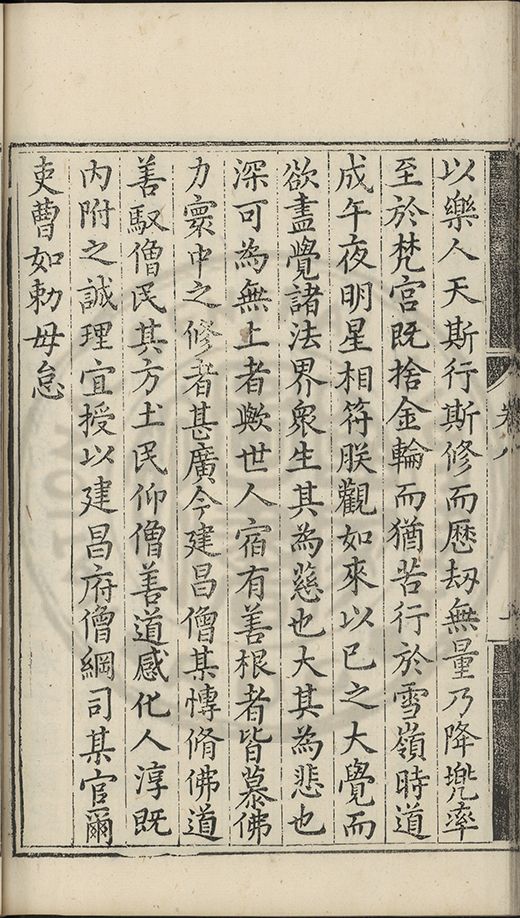 以樂人天斯行斯修而歷刼無量乃降兠率
至於梵宫既捨金輪而猶苦行於雪嶺時道
成午夜明星相符朕觀如來以己之大覺而
欲盡覺諸法界衆生其為慈也大其為悲也
深可為無上者歟世人宿有善根者皆慕佛
力寰中之修者甚廣今建昌僧某慱脩佛道
善馭僧民其方土民仰僧善道感化人淳既
内附之誠理宜授以建昌府僧綱司某官爾
吏曹如勅毋怠
卷八